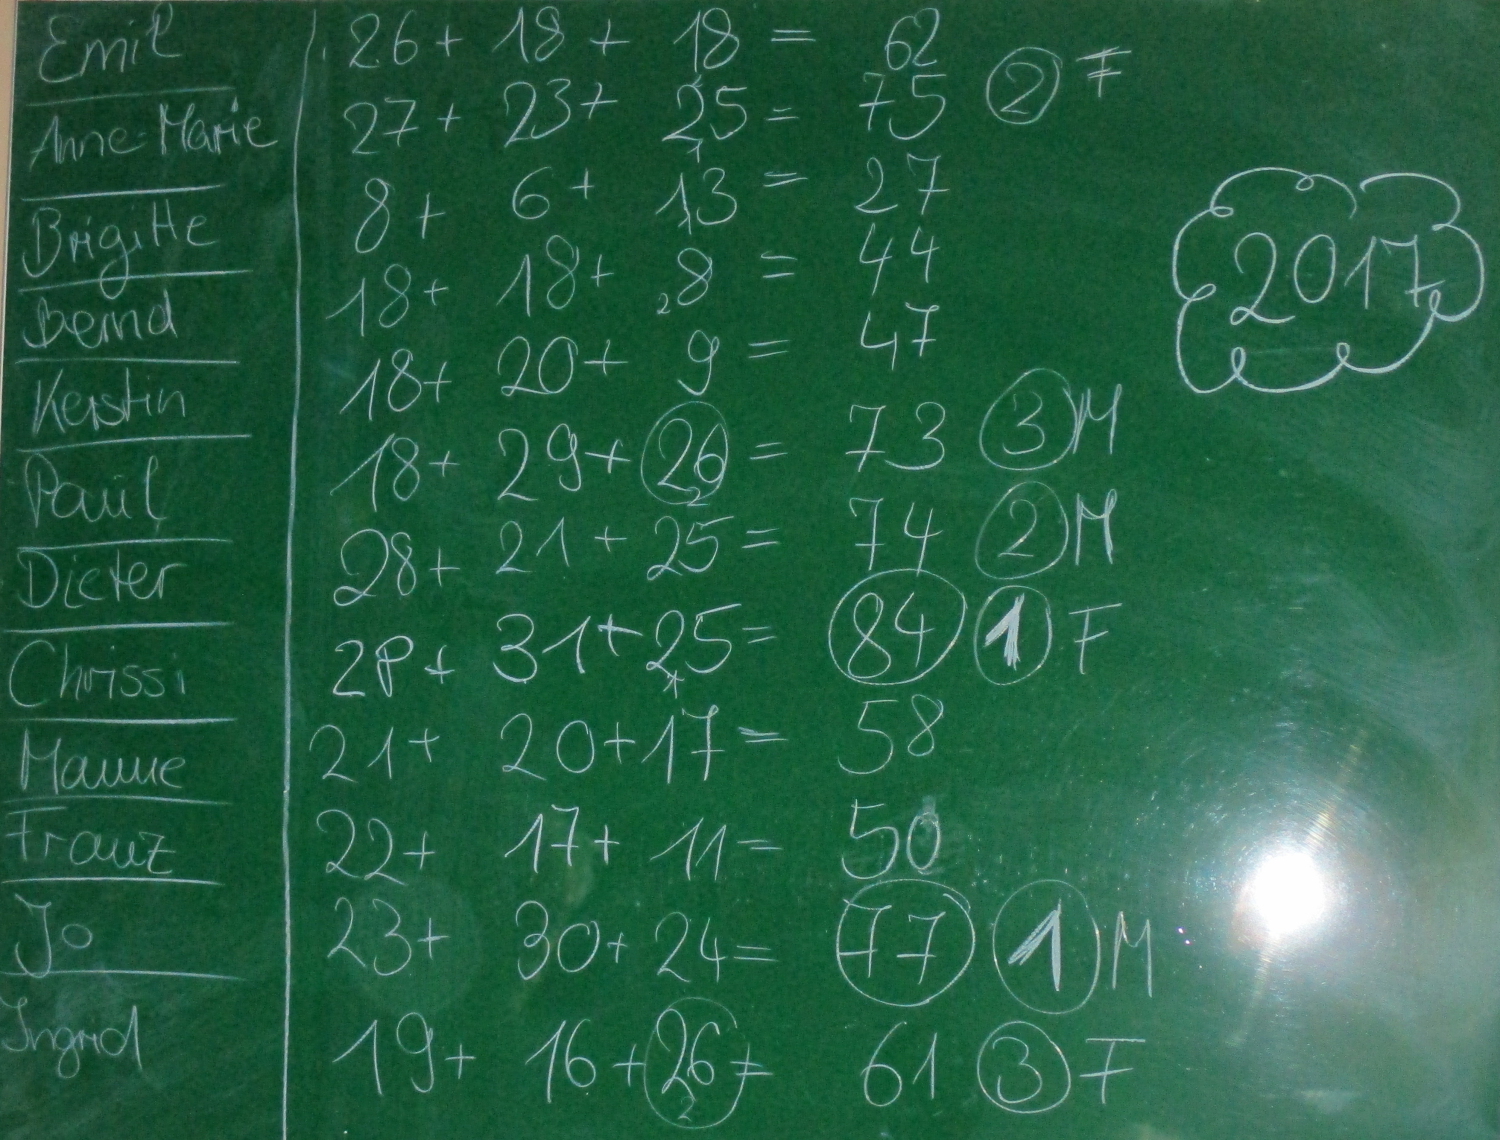 Emil 26 + 18 + 18 = 62
Anne-Marie 27 + 23 + 25 = 75 2 F
Brigitte 8 + 6 + 13 = 27
Bernd 18 + 18 + 8 = 44
Kerstin 18 + 20 + 9 = 47
Paul 18 + 29 + 26 = 73 3 M
Dieter 28 + 21 + 25 = 74 2 M
Chrissi 28 + 31 + 25 = 84 1 F
21 + 20 + 17 = 58
Franz 22 + 17 + 11 = 50
Jo 23 + 30 + 24 = 77 1 M
Ingrid 19 + 16 + 26 = 61 3 F
2017